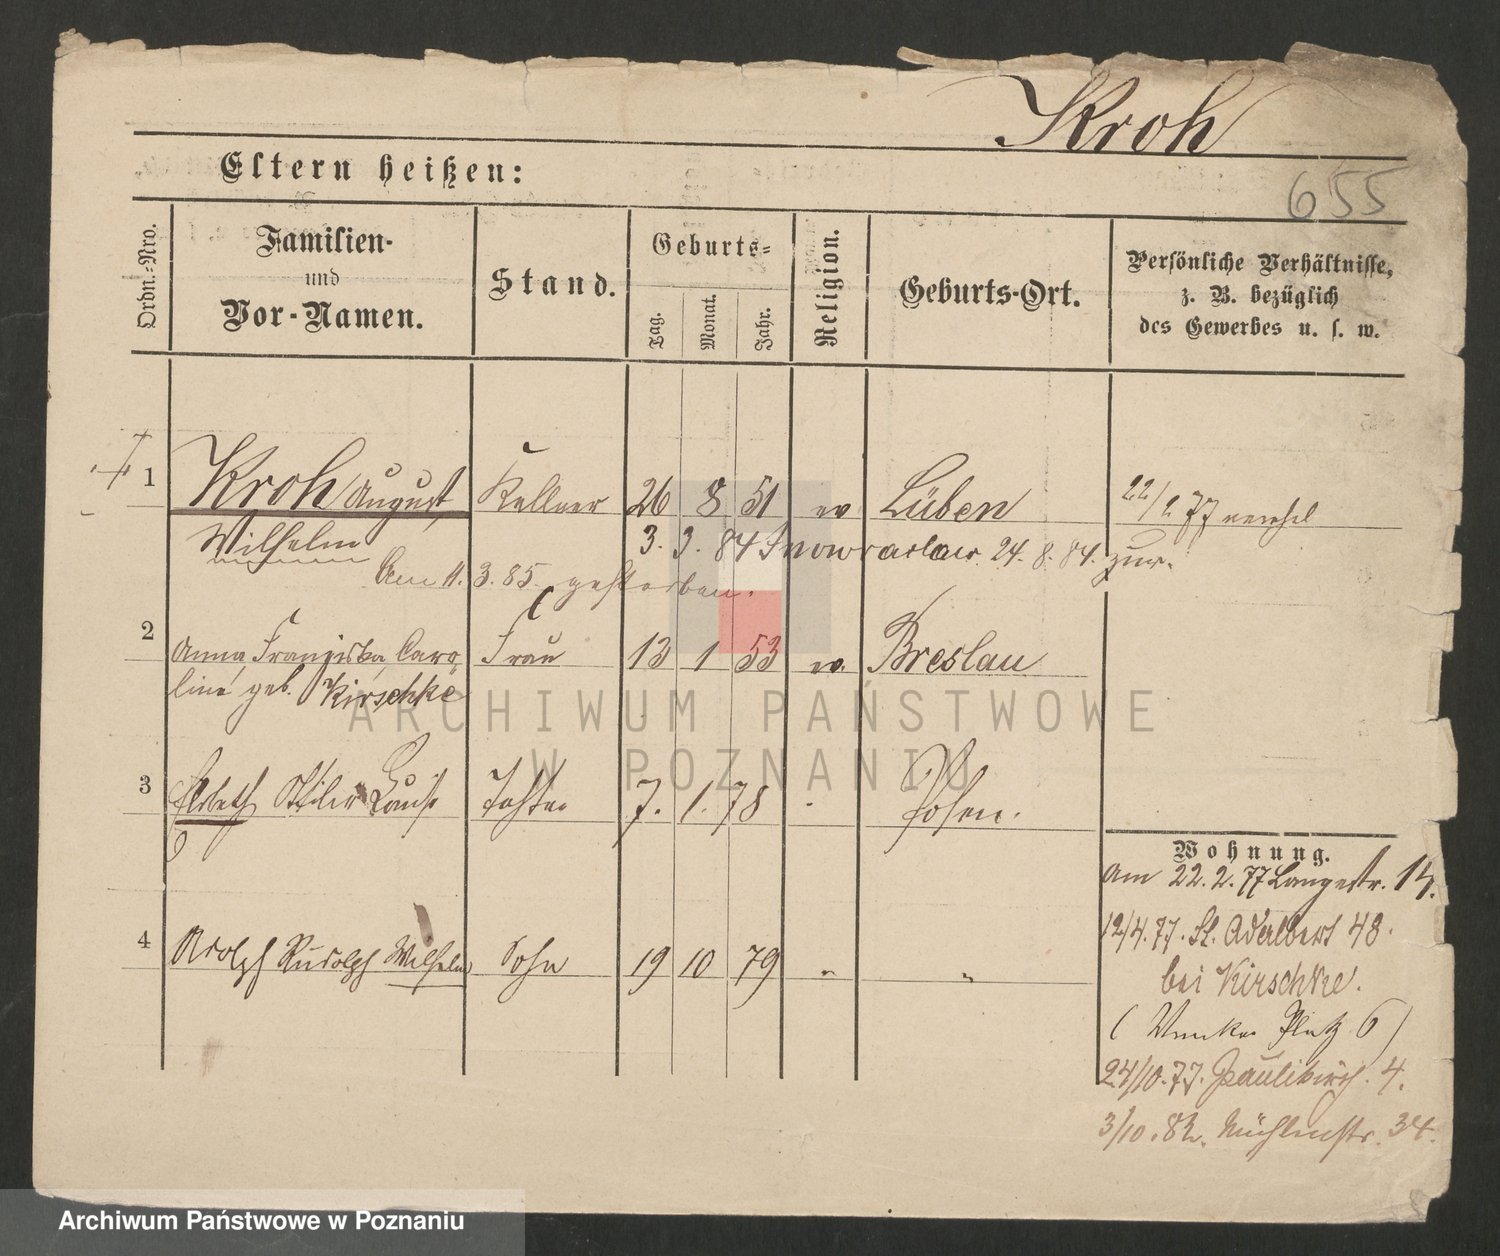 Kroh
Eltern heißen:
655
Ordn.-Nro.
Familien-
und
Vor-Namen.
Stand.
Geburts-
Tag.
Monat.
Jahr.
Religion.
Geburts-Ort.
Persönliche Verhältnisse,
z. B. bezüglich
des Gewerbes u. s. w.
1 Kroh August Kellner 26 8 51 ev Lüben 22/2 77
Wilhelm 3. 3. 84 Inowraclaw 24. 8. 84. zur.
Am 11. 3. 85. gestorben.
2 Anna Franziska Caro- Frau 13 1 53 ev. Breslau
line geb. Kirschke
3 Elsbeth Louise Tochter 7. 1. 78 Posen.
4 Adolph Rudolph Wilhelm Sohn 19 10 79 " "
Wohnung.
Am 22. 2. 77 Langestr. 14.
12/4. 77. St. Adalbert 48.
bei Kirschke.
( Platz 6 )
24/10. 77. Paulikirch. 4.
3/10. 82. Mühlenstr. 34.
ARCHIWUM PAŃSTWOWE
W POZNANIU
Archiwum Państwowe w Poznaniu